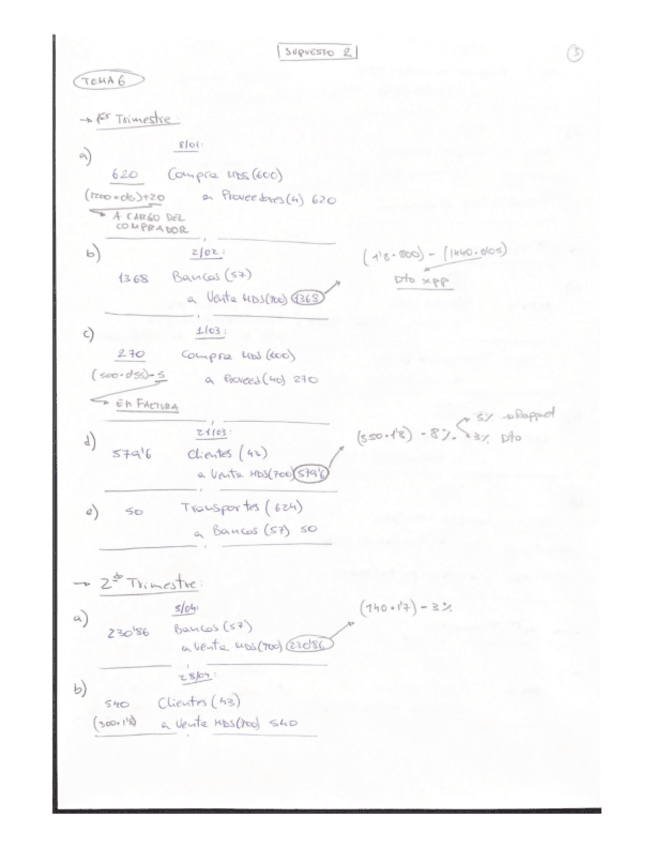 SUPUESTO 2
3
TEMA 6
→ 1er Trimestre:
a) 8/01:
620 Compra MDS (600)
(1200·0'5)+20 a Proveedores (4) 620
A CARGO DEL
COMPRADOR
b) 2/02:
1368 Bancos (57)
a Venta MDS (700) 1368
(1'8·800) - (1440·0'05)
Dto xpp
c) 1/03:
270 Compra MDS (600)
a Proveed (40) 270
EN FACTURA
d) 21/03:
579'6 Clientes (43)
a Venta MDS (700) 579'6
(350·1'8) - 8%
5% → Rappel
3% Dto
e) 50 Transportes (624)
a Bancos (57) 50
→ 2do Trimestre:
a) 5/04:
230'86 Bancos (57)
a Venta MDS (700) 230'86
(140·1'7) - 3%
b) 28/04:
540 Clientes (43)
(300·1'8) a Venta MDS (700) 540